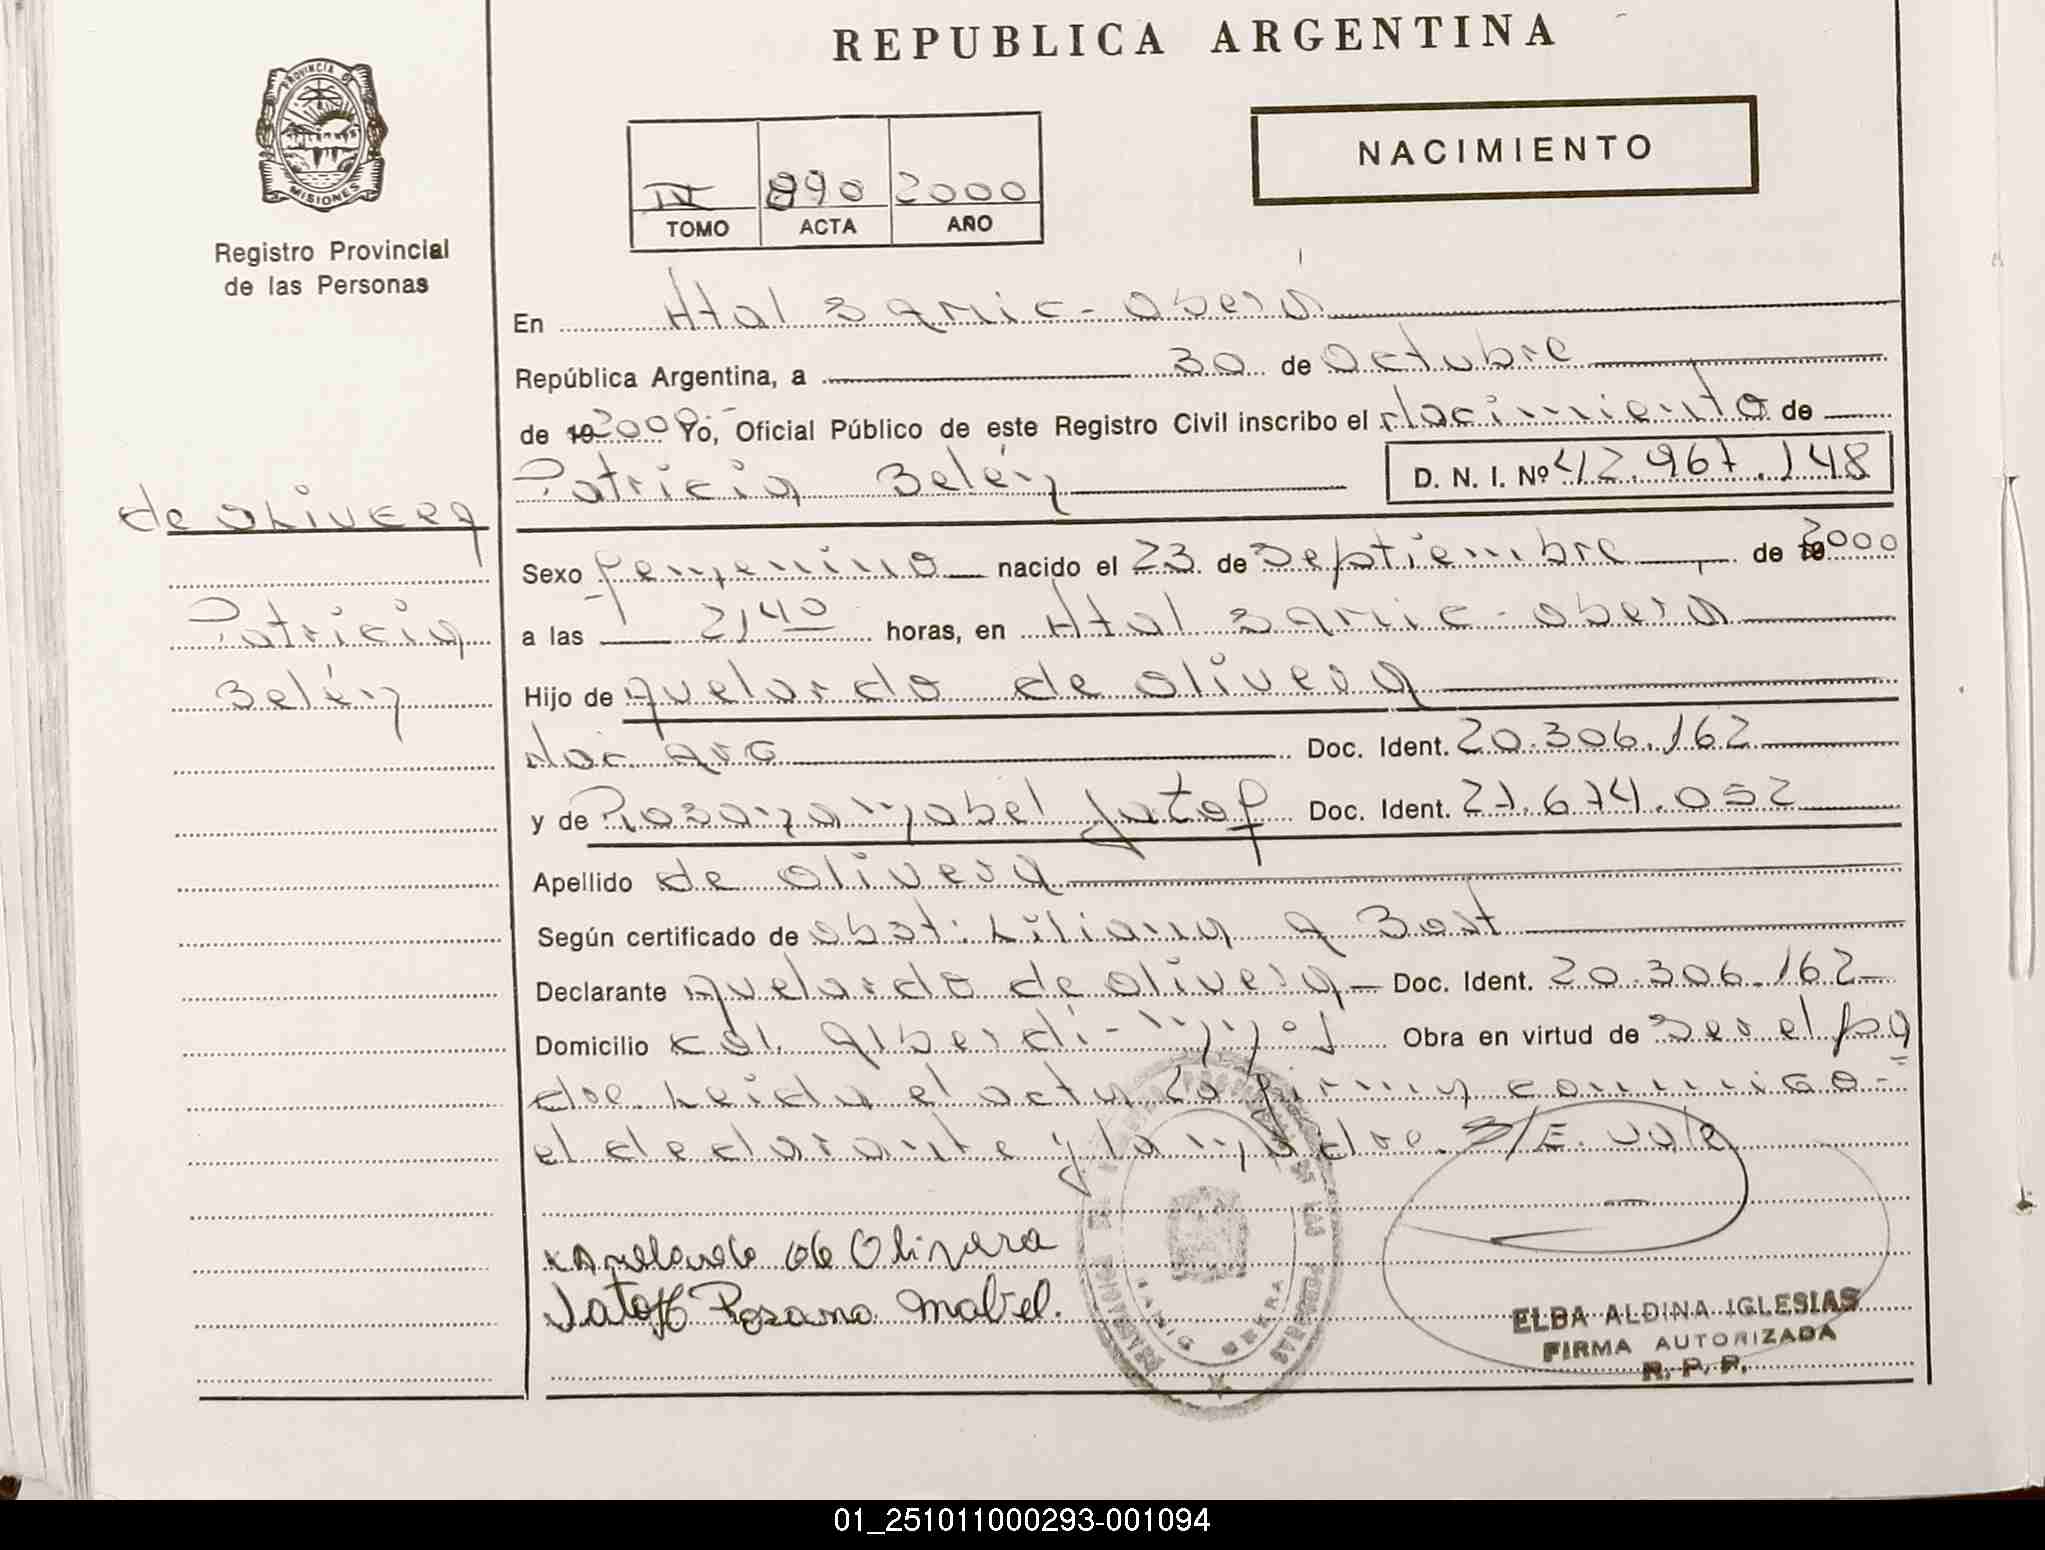 REPUBLICA ARGENTINA
PROVINCIA DE
MISIONES
Registro Provincial
de las Personas
IV 890 2000
TOMO ACTA AÑO
NACIMIENTO
En Htal Samic - Oberá
República Argentina, a 30 de Octubre
de 19 2000.- Yo, Oficial Público de este Registro Civil inscribo el Nacimiento de
Patricia Belén D. N. I. Nº 42.967.148
de Olivera
Patricia
Belén
Sexo femenino nacido el 23 de Septiembre de 19 2000
a las 21,40 horas, en Htal Samic - Oberá
Hijo de Avelardo de Olivera
Nac. Arg Doc. Ident. 20.306.162
y de Rosana Mabel Jatof Doc. Ident. 27.674.052
Apellido de Olivera
Según certificado de Obst. Liliana A Bost
Declarante Avelardo de Olivera Doc. Ident. 20.306.162
Domicilio Col. Alberdi - Obra en virtud de Ser el pa
dre. Leida el acta la firma conmigo -
el declarante y la madre. S/E. Vale
Avelardo de Olivera
Jatoff Rosana Mabel.
SAMIC OBERA
ELBA ALDINA IGLESIAS
FIRMA AUTORIZADA
R. P. P.
01_251011000293-001094